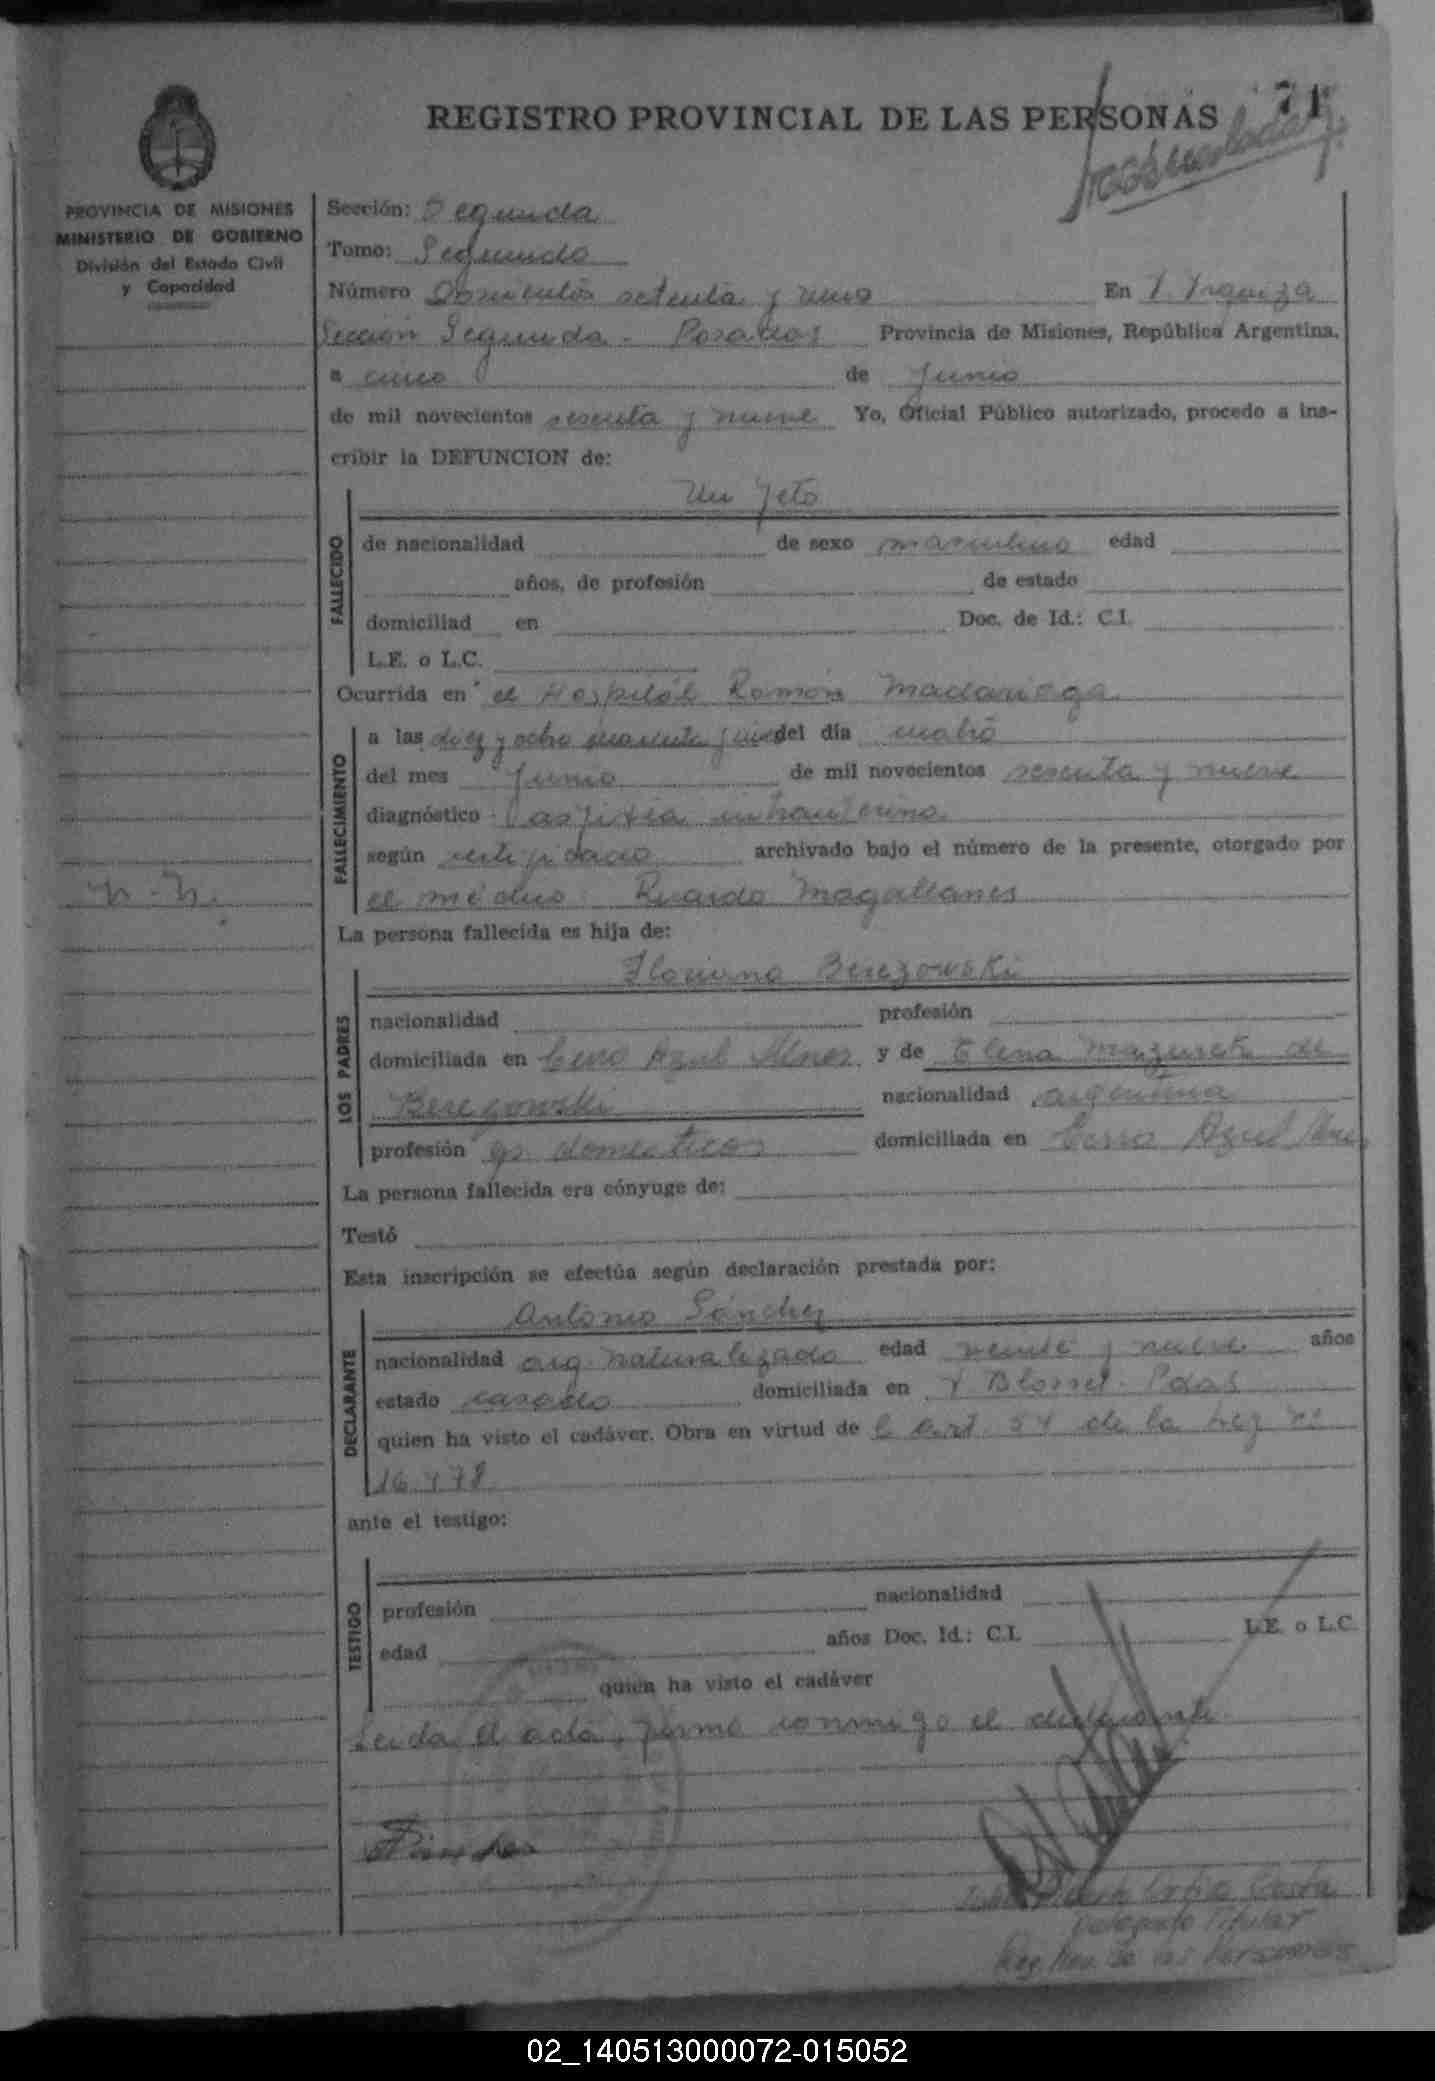 71
REGISTRO PROVINCIAL DE LAS PERSONAS
PROVINCIA DE MISIONES
MINISTERIO DE GOBIERNO
División del Estado Civil
y Capacidad
Sección: Segunda
Tomo: Segundo
Número Doscientos setenta y uno En V. Urquiza
Sección Segunda - Posadas Provincia de Misiones, República Argentina,
a cinco de Junio
de mil novecientos sesenta y nueve Yo, Oficial Público autorizado, procedo a ins-
cribir la DEFUNCION de:
Un feto
FALLECIDO
de nacionalidad de sexo masculino edad
años, de profesión de estado
domiciliad en Doc. de Id.: C.I.
L.E. o L.C.
Ocurrida en el Hospital Ramón Madariaga
FALLECIMIENTO
a las diez y ocho cuarenta y del día cuatro
del mes Junio de mil novecientos sesenta y nueve
diagnóstico asfixia intrauterina
según certificado archivado bajo el número de la presente, otorgado por
el médico: Ricardo Magallanes
N.N.
La persona fallecida es hija de:
Floriano Berezowski
LOS PADRES
nacionalidad profesión
domiciliada en Cerro Azul Mnes. y de Elena Mazurek de
Berezowski nacionalidad argentina
profesión qs. domesticos domiciliada en Cerro Azul Mnes
La persona fallecida era cónyuge de:
Testó
Esta inscripción se efectúa según declaración prestada por:
Antonio Sánchez
DECLARANTE
nacionalidad arg. naturalizado edad veinte y nueve años
estado casado domiciliada en V. Blosset - Pdas
quien ha visto el cadáver. Obra en virtud de l art. 54 de la Ley nº
16.478
ante el testigo:
TESTIGO
profesión nacionalidad
edad años Doc. Id.: C.I. L.E. o L.C.
quien ha visto el cadáver
Leida el acta, firma conmigo el declarante.
Ortiz
Delegado Titular
Reg. Prov. de las Personas
02_140513000072-015052